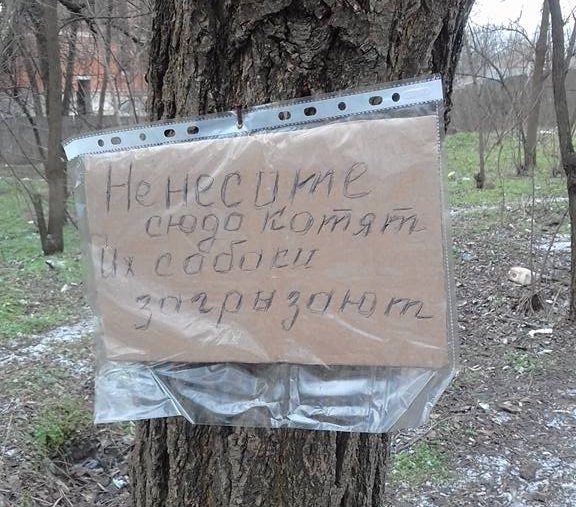 Не несите
сюда котят
Их собаки
загрызают